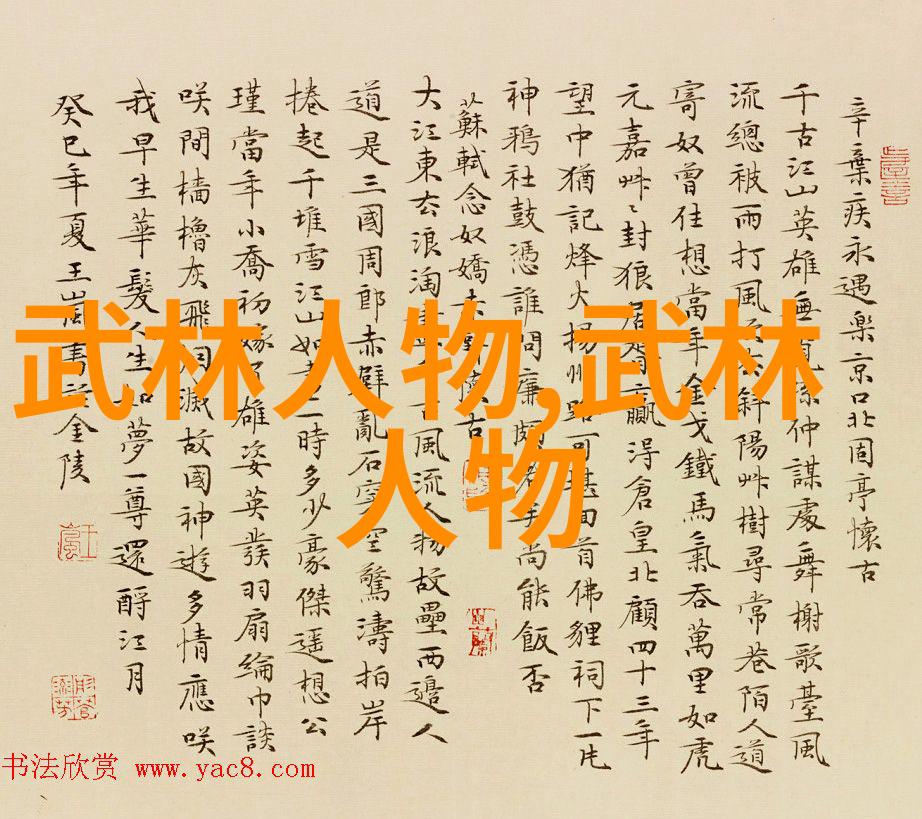 辛棄疾永遇楽京口北固亭懷古
千古江山英雄無覓孫仲謀處舞榭歌臺風
流總被雨打風吹去斜陽艸樹尋常巷陌人道
寄奴曾住想當年金戈鐵馬氣吞萬里如虎
元嘉艸〻封狼居胥贏得倉皇北顧四十三年
望中猶記烽火揚州路可堪回首佛貍祠下一片
神鴉社鼓憑誰問廉頗老矣尚能飯否
蘇軾念奴嬌赤壁懷古
大江東去浪淘盡千古風流人物故壘西邊人
道是三國周郎赤壁亂石穿空驚濤拍岸
捲起千堆雪江山如畫一時多少豪傑遥想公
瑾當年小喬初嫁了雄姿英發羽扇綸巾談
咲間檣櫓灰飛煙滅故國神遊多情應咲
我早生華髮人生如夢一尊還酹江月
癸巳年夏王嵐書於金陵
武林人物,武林
人物
书法欣赏 www.yac8.com